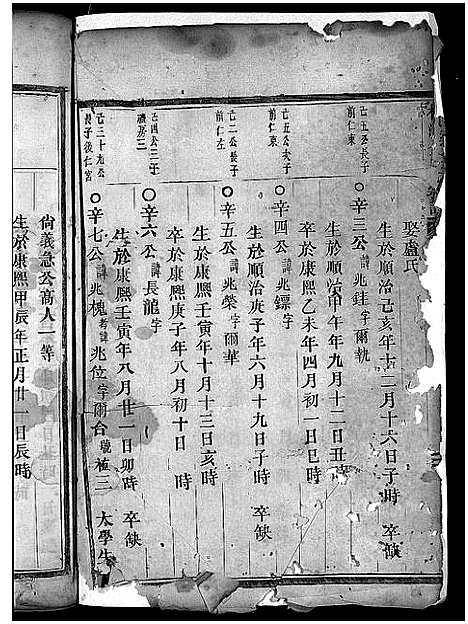 娶盧氏
生於順治己亥年十二月十六日子時 卒缺
己五公長子
前仁東
辛三公 諱兆鈺 字爾執
生於順治甲午年九月十二日丑時
卒於康熙乙未年四月初一日巳時
己五公次子
前仁東
辛四公 諱兆鏢 字
生於順治庚子年六月十九日子時 卒缺
己二公長子
前仁左
辛五公 諱兆榮 字爾華
生於康熙壬寅年十月十三日亥時
卒於康熙庚子年八月初十日 時
己四公三子
辛六公 諱長龍 字
生於康熙壬寅年八月廿一日卯時 卒缺
己三十九公
長子後仁宮
辛七公 諱兆槐 考諱兆位 字爾台 號植三 太學生
尙義急公高人一等
生於康熙甲辰年正月廿一日辰時